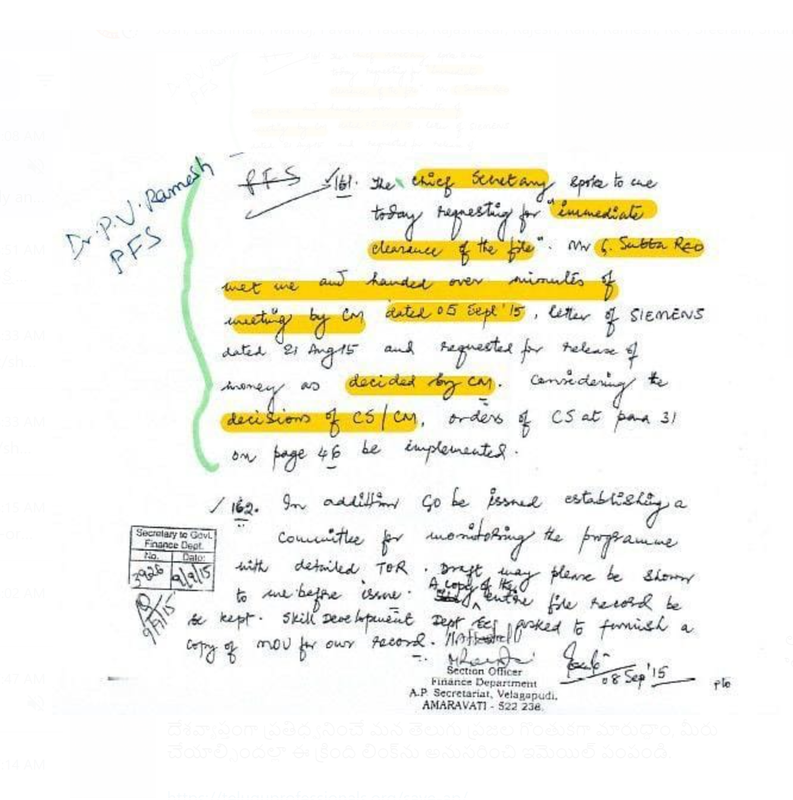 Dr. P.V. Ramesh
PFS
PFS
161. The Chief Secretary spoke to me
today requesting for "immediate
clearance of the file". Mr G. Subba Rao
met me and handed over minutes of
meeting by CM dated 05 Sept'15, letter of SIEMENS
dated 21 Aug 15 and requested for release of
money as decided by CM. Considering the
decisions of CS/CM, orders of CS at para 31
on page 46 be implemented.
162. In addition GO be issued establishing a
Committee for monitoring the programme
with detailed TOR. Draft may please be shown
to me before issue. A copy of the entire file record be
kept. Skill Development Dept asked to furnish a
copy of MOU for our record.
Secretary to Govt.
Finance Dept.
No. Date:
3926 9/9/15
9/9/15
08 Sep'15
pto
Section Officer
Finance Department
A.P. Secretariat, Velagapudi,
AMARAVATI - 522 238.